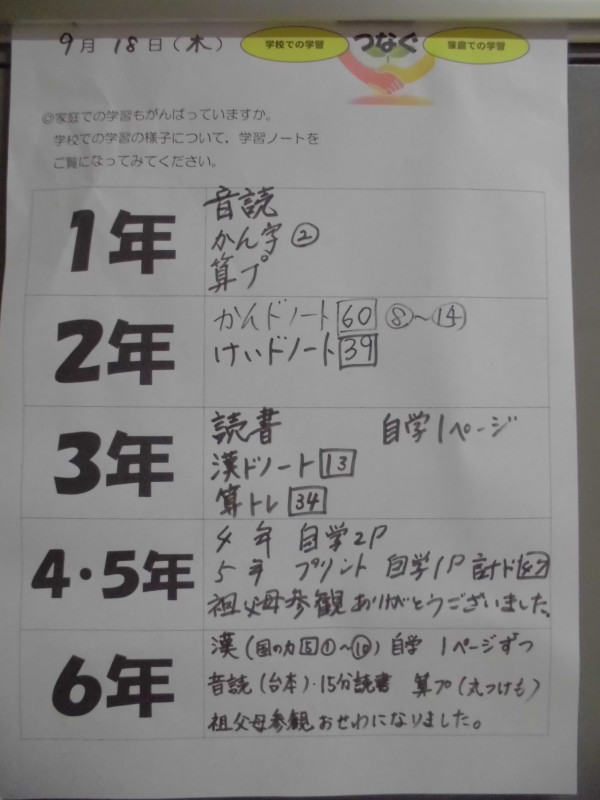 9月 18日(木)
学校での学習 つなぐ 家庭での学習
◎家庭での学習もがんばっていますか。
学校での学習の様子について、学習ノートを
ご覧になってみてください。
1年
音読
かん字②
算プ
2年
かんドノート 60 ⑧〜⑭
けいドノート 39
3年
読書 自学1ページ
漢ドノート 13
算トレ 34
4・5年
4年 自学2P
5年 プリント 自学1P 計ド
祖父母参観ありがとうございました。
6年
漢(国の力 5 ①〜⑩)自学 1ページずつ
音読(台本)・15分読書 算プ(丸つけも)
祖父母参観おせわになりました。